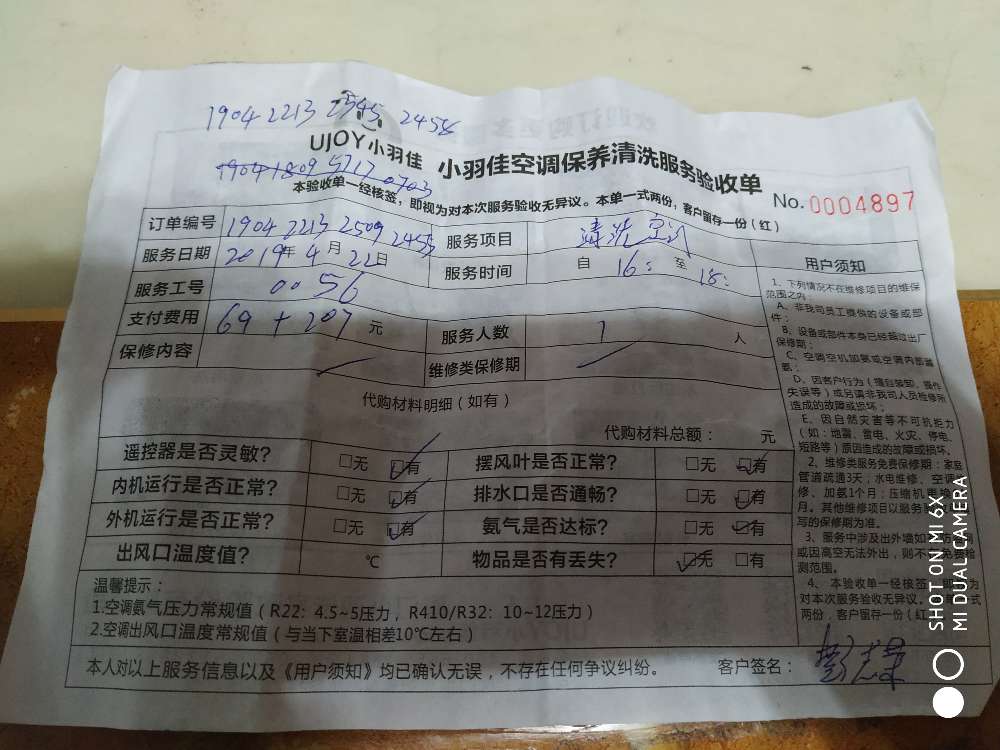 1904 2213 2545 2458
UJOY小羽佳 小羽佳空调保养清洗服务验收单
1904 1809 5717 0703
No. 0004897
本验收单一经核签，即视为对本次服务验收无异议。本单一式两份，客户留存一份（红）
订单编号 1904 2213 2509 2455 服务项目 清洗空调
服务日期 2019年4月22日 服务时间 自 16: 至 18:
服务工号 0056
支付费用 69 + 207 元 服务人数 1 人
保修内容 维修类保修期
代购材料明细（如有）
代购材料总额： 元
遥控器是否灵敏？ □无 □有 摆风叶是否正常？ □无 □有
内机运行是否正常？ □无 □有 排水口是否通畅？ □无 □有
外机运行是否正常？ □无 □有 氨气是否达标？ □无 □有
出风口温度值？ ℃ 物品是否有丢失？ □无 □有
温馨提示：
1.空调氨气压力常规值（R22: 4.5~5压力，R410/R32：10~12压力）
2.空调出风口温度常规值（与当下室温相差10℃左右）
本人对以上服务信息以及《用户须知》均已确认无误，不存在任何争议纠纷。 客户签名：
用户须知
1、下列情况不在维修项目的维保
范围之内：
A、非我司员工提供的设备或部
件；
B、设备或部件本身已经超过出厂
保修期；
C、空调空机加氨或空调内部器
D、因客户行为（擅自装卸、操作
失误等）或另请非我司人员检修所
造成的故障或损坏；
E、因自然灾害等不可抗拒力
（如：地震、雷电、火灾、停电、
短路等）原因造成的故障或损坏。
2、维修类服务免费保修期：家庭
管道疏通3天；水电维修、空调
修、加氨1个月；压缩机更换
月。其他维修项目以服务
写的保修期为准。
3、服务中涉及出外墙如
或因高空无法外出，则不
测范围。
4、本验收单一经核签，即
对本次服务验收无异议。
两份，客户留存一份（红
SHOT ON MI 6X
MI DUAL CAMERA